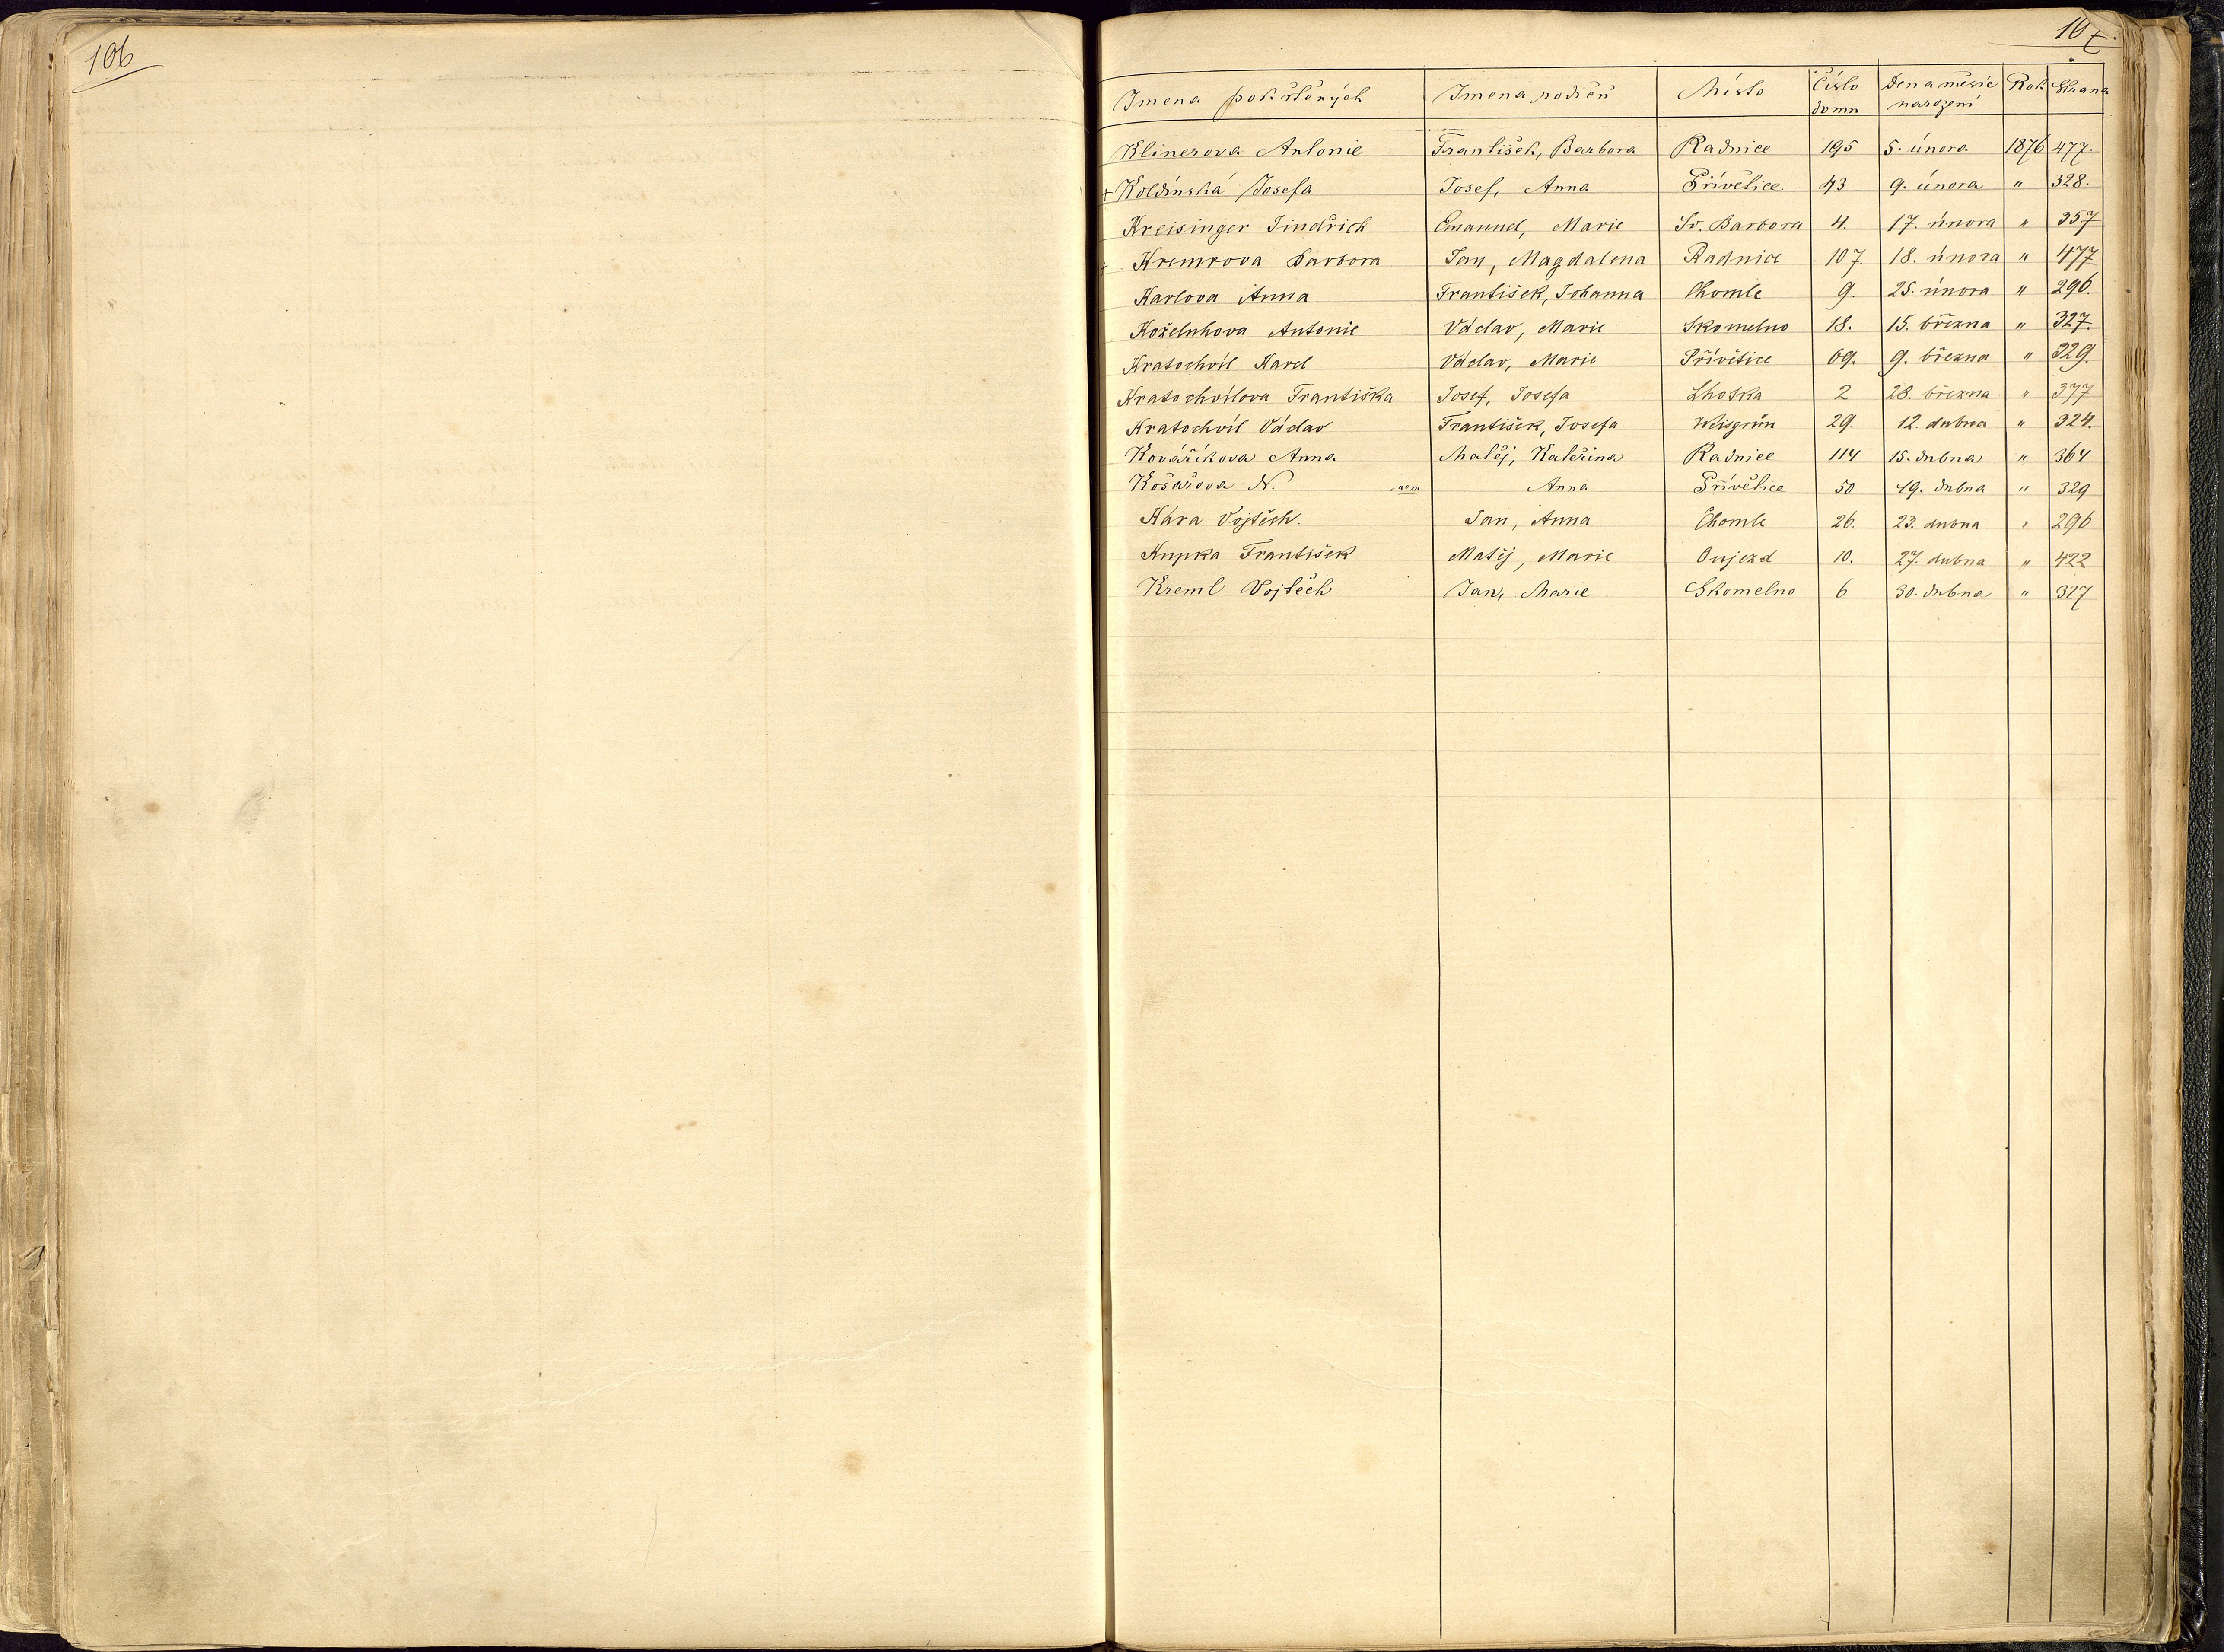 106
107.
Jmena pokřtěných Jmena rodičů Místo Číslo domu Den a měsíc narození Rok Strana
Klinerova Antonie František, Barbora Radnice 195 5. února 1876 477.
+ Koldínská Josefa Josef, Anna Přívětice 43 9. února " 328.
Kreisinger Jindřich Emanuel, Marie Sv. Barbora 4. 17. února " 357
+ Kremrova Barbora Jan, Magdalena Radnice 107. 18. února " 477
Karlova Anna František, Johanna Chomle 9. 25. února " 296.
Koželuhova Antonie Václav, Marie Skomelno 18. 15. března " 327.
Kratochvíl Karel Václav, Marie Přívětice 69. 9. března " 329.
Kratochvílova Františka Josef, Josefa Lhotka 2 28. března " 377
Kratochvíl Václav František, Josefa Weisgrün 29. 12. dubna " 324.
Kovaříkova Anna Matěj, Kateřina Radnice 114 15. dubna " 364
Košařova N. nem Anna Přívětice 50 19. dubna " 329
Kára Vojtěch. Jan, Anna Chomle 26. 23. dubna " 296
Kupka František Matěj, Marie Oujezd 10. 27. dubna " 422
Kreml Vojtěch Jan, Marie Skomelno 6 30. dubna " 327